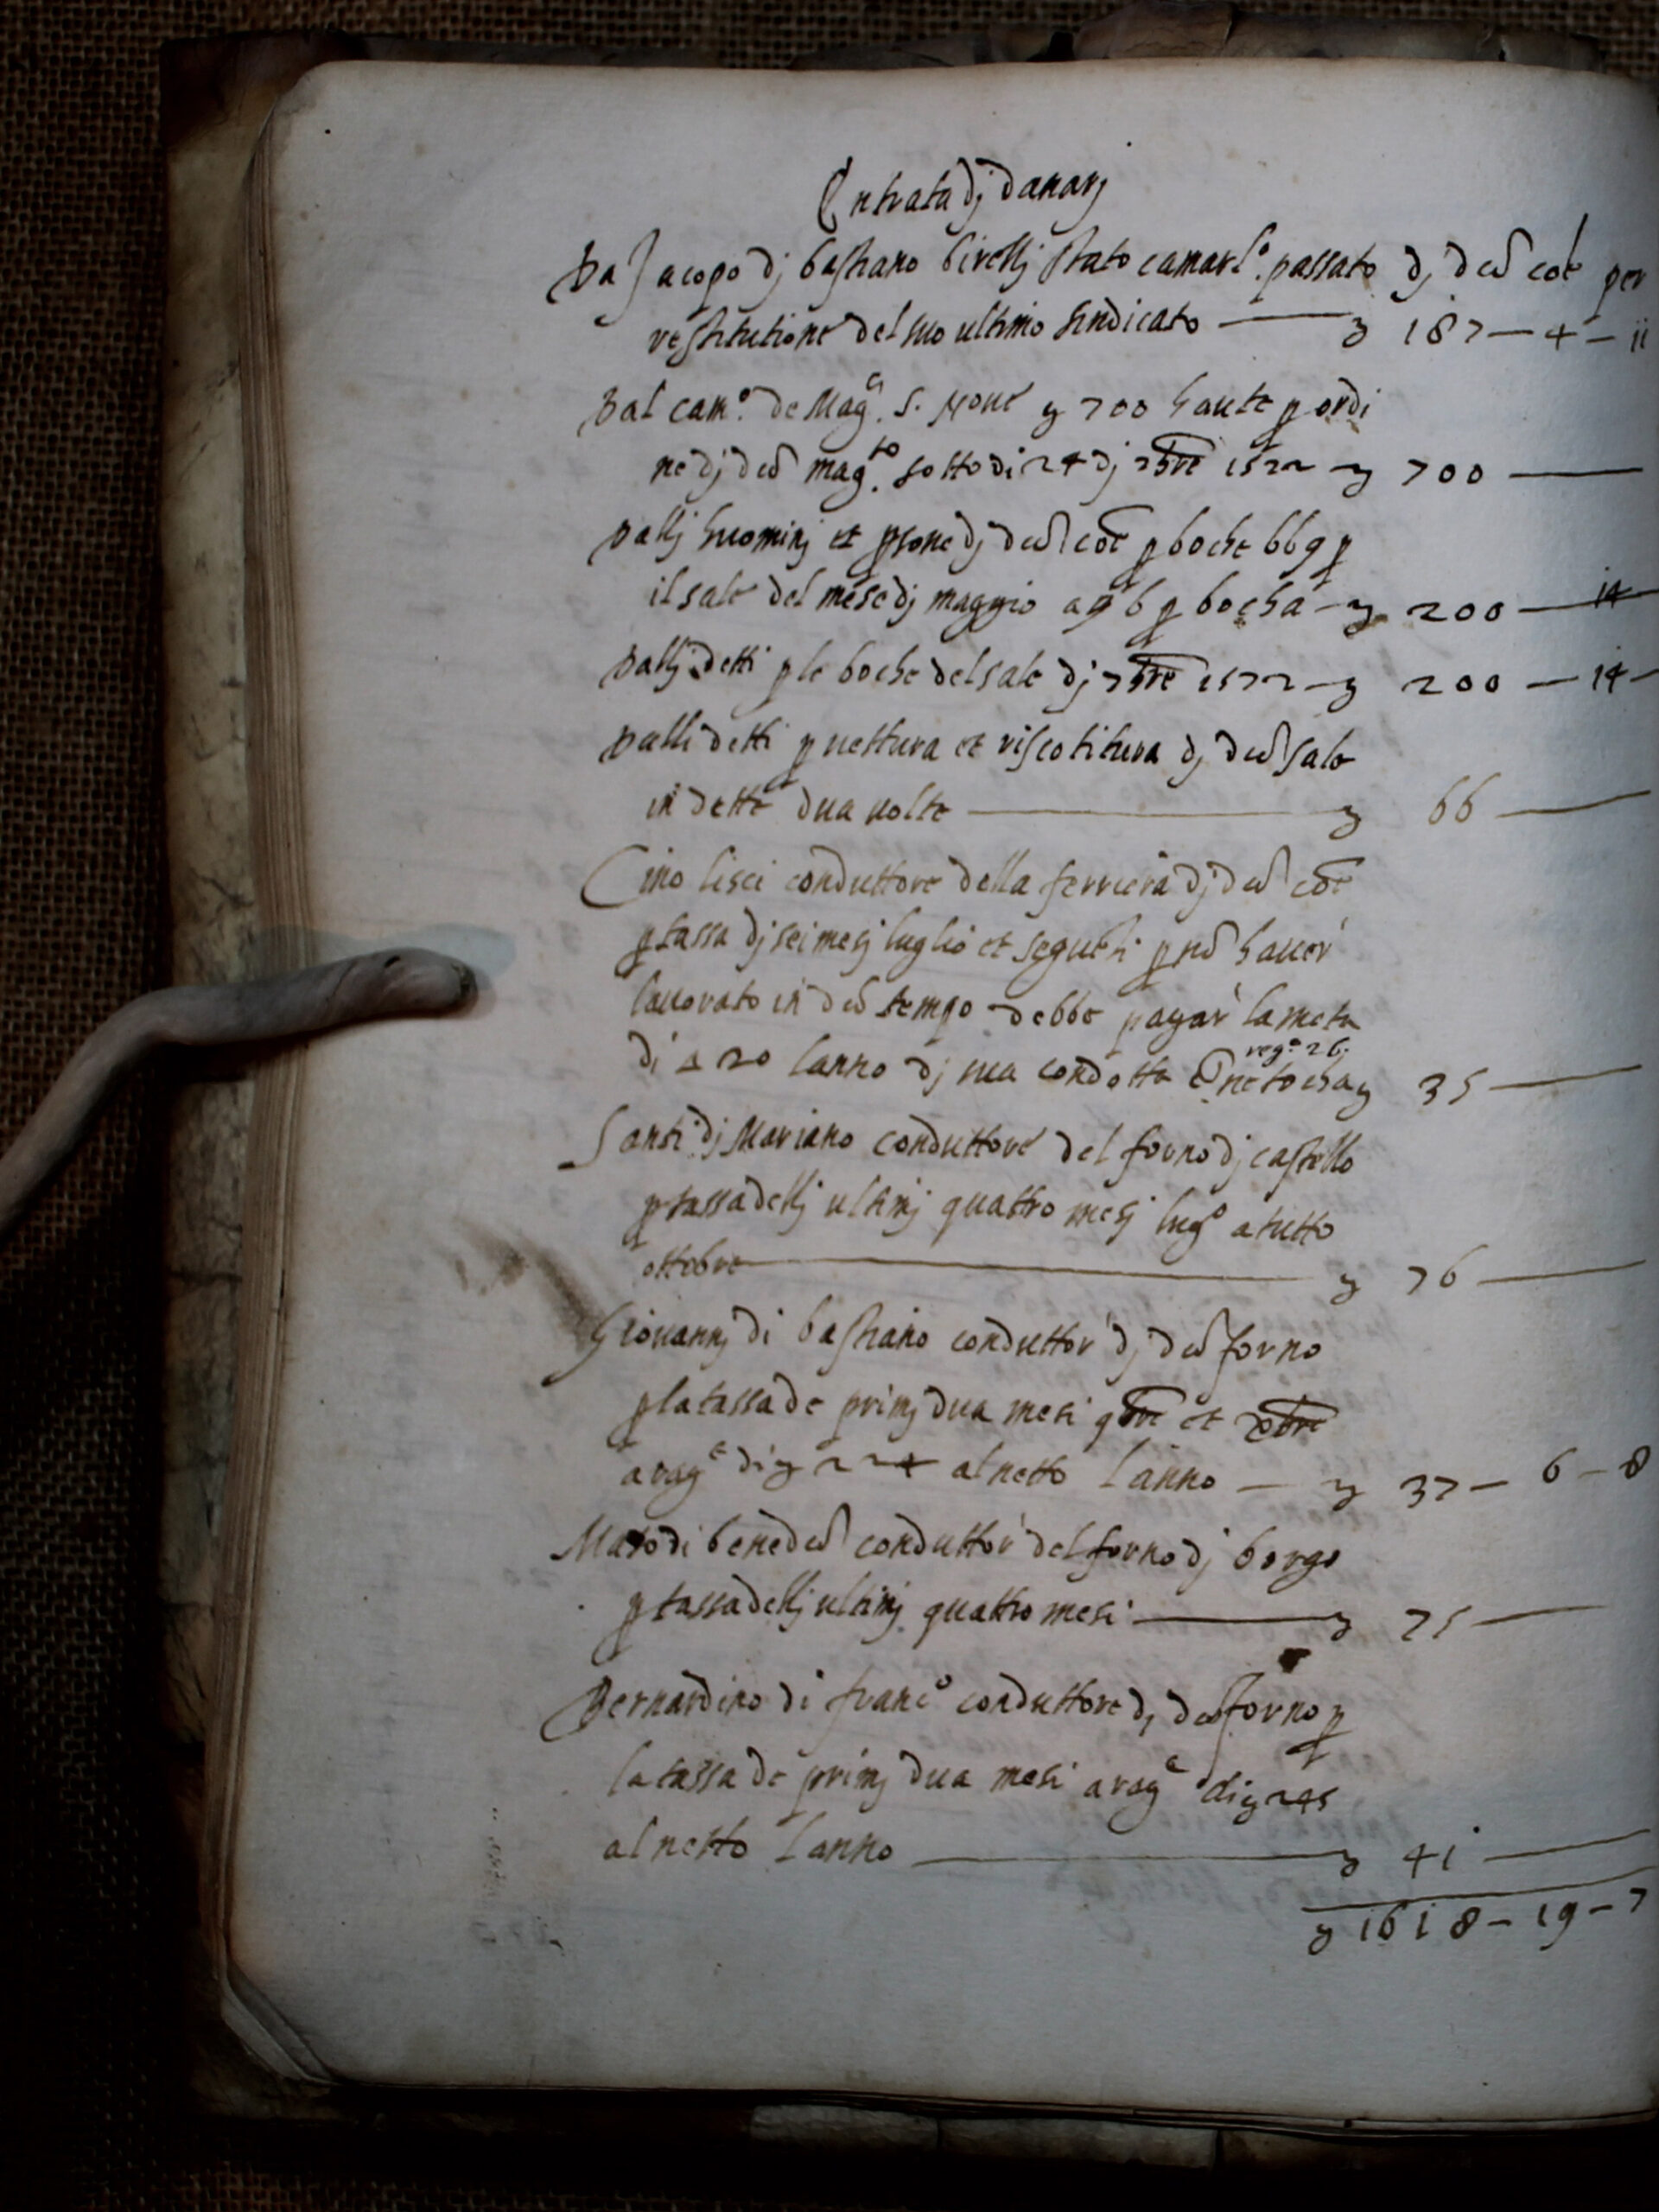 Entrata dj danarj
Da Jacopo dj bastiano birellj stato camarl.º passato dj dcõ coẽ per
restitutione del suo ultimo sindicato — 187 — 4 — 11
Dal cam.º de Mag.ci S. Noue 700 haute p ordi
ne dj dcõ mag.to sotto di 24 dj 7bre 1572 700 —
Dallj huominj et psone dj dcõ coẽ p boche 669 p
il sale del mese dj maggio a q 6 p bocha — 200 — 14
Dallj detti p le boche del sale dj 7bre 1572 — 200 — 14 —
Dalli detti p uettura et riscotitura dj dcõ sale
in dette dua uolte — 66 —
Cino lisci conduttore della ferriera dj dcõ coẽ
p tassa dj sei mesj luglio et seguẽti p nõ hauer
lauorato in dcõ tempo debbe pagar la meta
di 20 lanno dj sua condotta ne tocha 35 —
reg.º 26
Santi dj Mariano conduttore del forno dj castello
p tassa dellj ultimj quattro mesj lugº a tutto
ottobre — 76 —
Giouannj di bastiano conduttor dj dcõ forno
p la tassa de primj dua mesi 9bre et Xbre
a ragº di 224 al netto lanno — 37 — 6 — 8
Maso di benedcõ conduttor del forno dj borgo
p tassa dellj ultimj quattro mesi — 75 —
Bernardino di francº conduttore dj dcõ forno p
la tassa de primj dua mesi a ragº di 245
al netto lanno — 41 —
1618 — 19 — 7